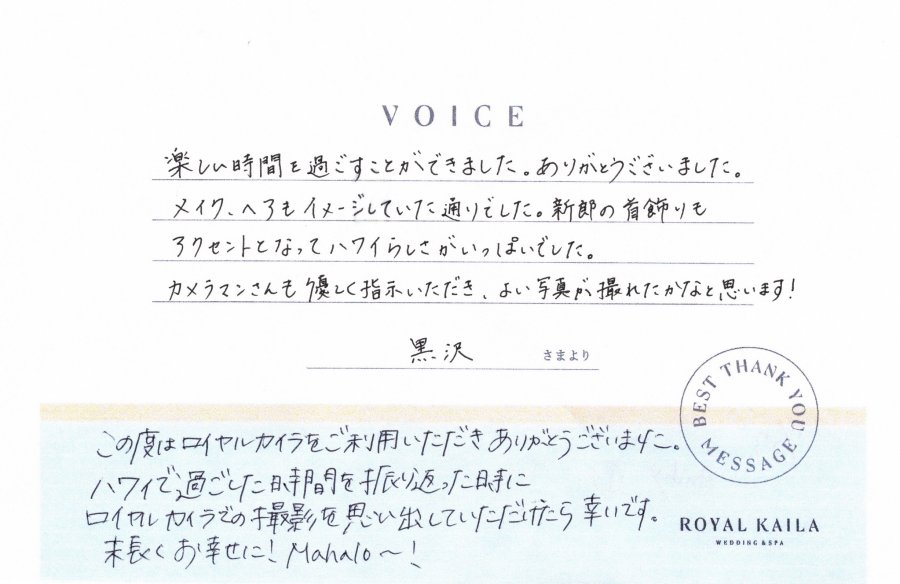 VOICE
楽しい時間を過ごすことができました。ありがとうございました。
メイク、ヘアもイメージしていた通りでした。新郎の首飾りも
アクセントとなってハワイらしさがいっぱいでした。
カメラマンさんも優しく指示いただき、よい写真が撮れたかなと思います!
黒沢 さまより
BEST THANK YOU MESSAGE
この度はロイヤルカイラをご利用いただきありがとうございます。
ハワイで過ごした時間を振り返った時に
ロイヤルカイラでの撮影を思い出していただけたら幸いです。
末長くお幸せに! Mahalo〜!
ROYAL KAILA
WEDDING & SPA